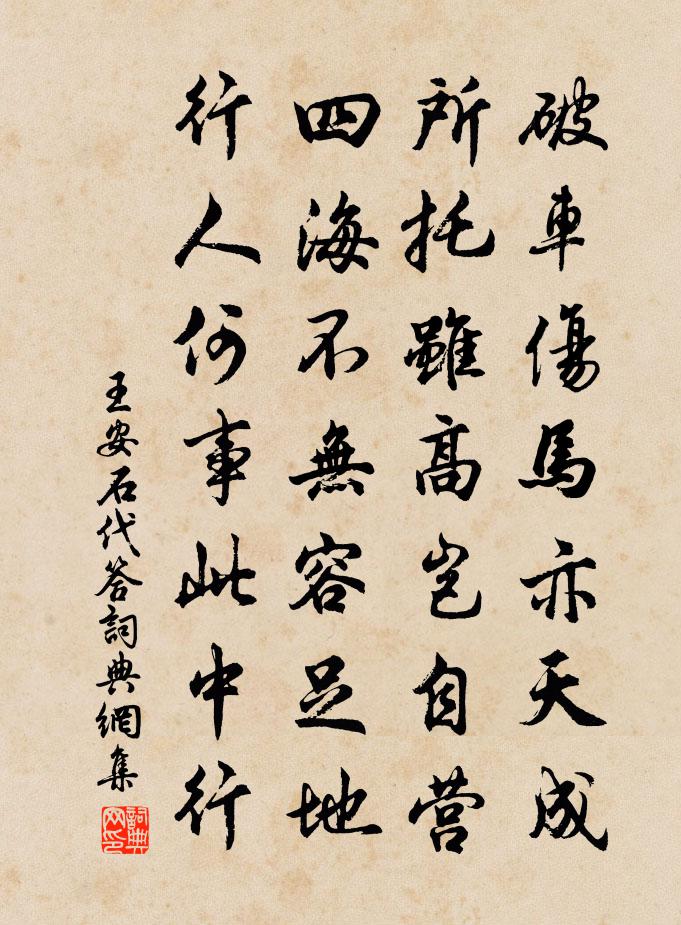 破車傷馬亦天成
所托雖高豈自营
四海不無容足地
行人何事此中行
王安石代答詞典網集
詞典網印